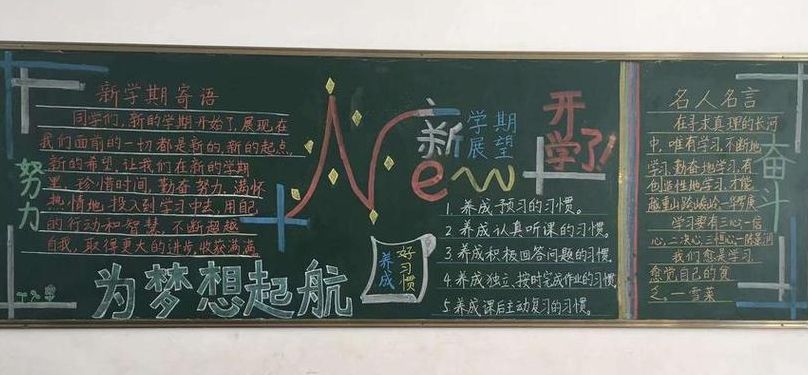 新学期寄语
同学们,新的学期开始了,展现在
我们面前的一切都是新的,新的起点,
新的希望,让我们在新的学期
里,珍惜时间,勤奋努力,满怀
热情地,投入到学习中去,用自己
的行动和智慧,不断超越
自我,取得更大的进步,收获满满
努力
为梦想起航
New
新
学期
展望
开
学了!
1.养成预习的习惯。
2.养成认真听课的习惯。
3.养成积极回答问题的习惯
4.养成独立、按时完成作业的习惯
5.养成课后主动复习的习惯。
养成
好习惯
名人名言
在寻求真理的长河
中,唯有学习,不断地
学习,勤奋地学习,有
创造性地学习,才能
越重山跨峻岭—华罗庚
学习要有三心一信
心,二决心,三恒心—陈景润
我们愈是学习,
愈觉自己的贫
乏。—雪莱
奋斗